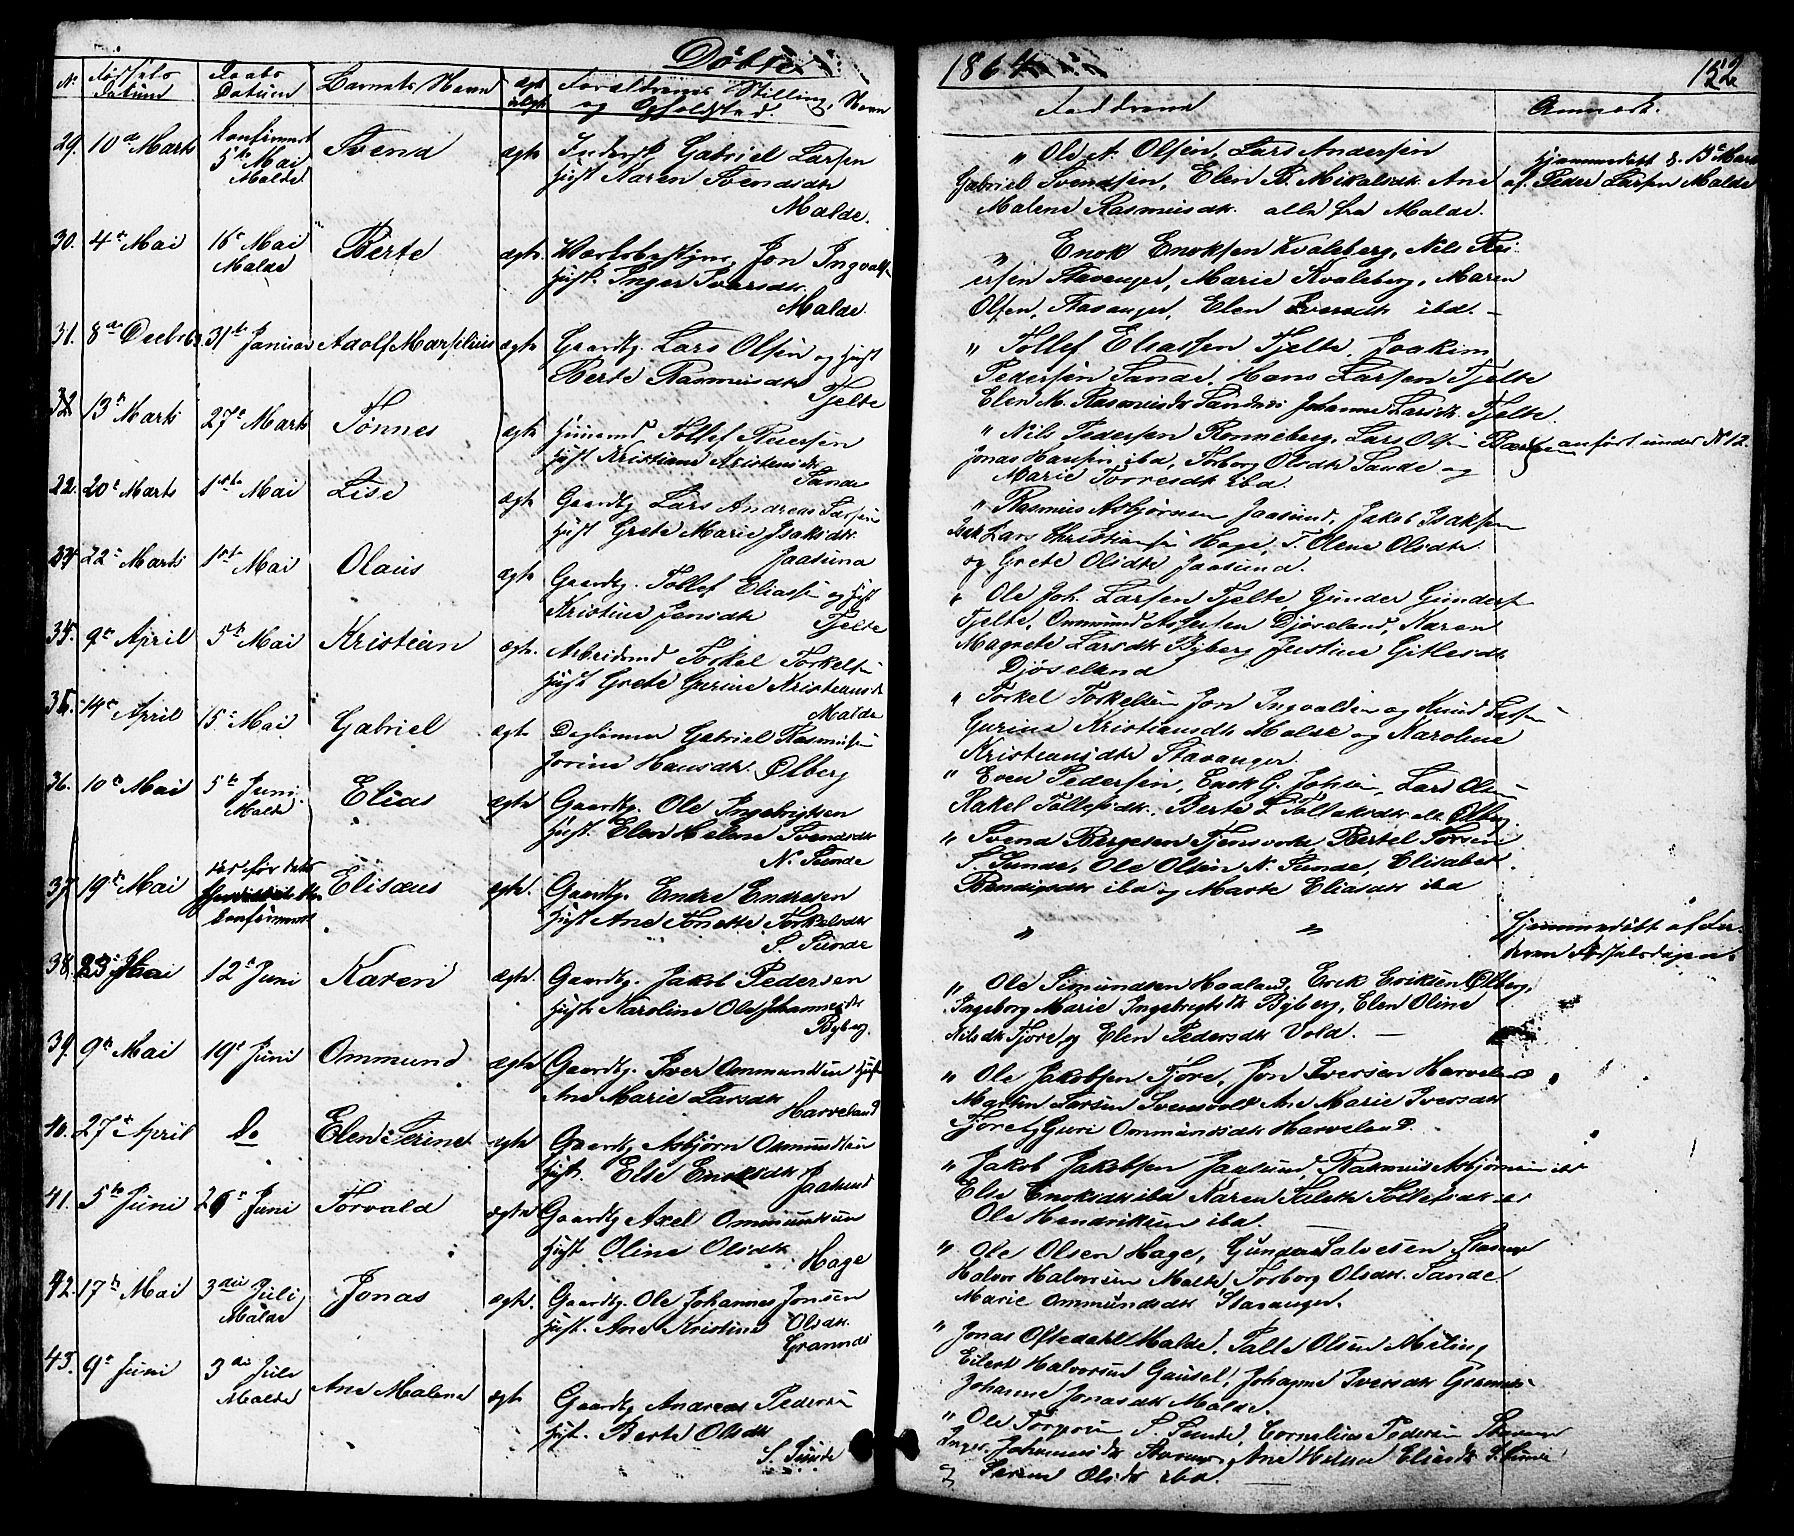 Døbte
1864
No Fødsels Datum
Daabs Datum
Barnets Navn
ægt uægt
Forældrenes Stilling, Navn og Opholdsted.
Fadderne
Anmerk.
29. 10de Marts
Confirmert 5te Mai Malde
Svend
ægte
Gabriel Larsen
Hust Karen Svendsdtr
Malde.
" Ole A. Olsen, Lars Andersen
Gabriel Svendsen, Elen B. Mikalsdtr. Ane
Malene Rasmusdtr. alle fra Malde.
Hjemmedøbt d. 13de Marts
af Peder Larsen Malde
30. 4de Mai
16de Mai Malde
Berte
ægte.
Værksbestyrer Jon Ingvalsen
Hust. Inger Iversdtr
Malde.
" Enok Enoksen Kvaleberg, Nils Rei-
ersen Stavanger, Marie Kvaleberg, Maren
Olsen, Stavanger, Elen Iversdtr ibd.
31. 8de Decbr 63
31te Januar
Adolf Marselius
ægte
Gaardbr. Lars Olsen og Hust
Berte Rasmusdtr
Tjelte
" Tollef Eliassen Tjelte, Joakim
Pedersen Sande, Hans Larsen Tjelte
Elen M. Rasmusdtr Sande, Johanne Larsdtr. Tjelte.
32 13de Marts
27de Marts
Tønnes
ægte
Huusmd. Tollef Reiersen
Hust Kristiane Kristensdtr
Sande
" Nils Pedersen Ronneberg, Lars Olsen
Jonas Hansen ibd, Torborg Olsdtr Sande og
Marie Torresdtr ibd.
anført under No 12.
20de Marts
1ste Mai
Lise
ægte
Gaardbr Lars Andreas Larsen
Hust Grete Marie Isaksdtr.
Jaasund
" Rasmus Asbjørnsen Jaasund, Jakob Isaksen
Lars Christiansen Hage, T. Olene Olsdtr
og Grete Olsdtr Jaasund.
22de Marts
1ste Mai
Olaus
ægte
Gaardbr. Tollef Eliassen og Hust
Kristine Jensdtr
Tjelte
" Ole Joh. Larsen Tjelte, Gunder Gunders
Tjelte, Ommund Djøseland, Karen
Magrete Larsdtr Byberg Justine Gitlesdtr
Djøseland
9de April
5te Mai
Kristian
ægte.
Arbeidsmd Torkel Torkelsen
Hust Grete Gurine Kristiansdtr
Malde
" Torkel Torkelsen Jon Ingvaldsen og Knud
Gurine Kristiansdtr Malde og Karoline
Kristiansdtr Stavanger
14de April
15de Mai
Gabriel
ægte
Daglønner Gabriel Rasmusen
Jorine Hansdtr. Ølberg
" Even Pedersen, Enok G. Johsen, Lars Olsen
Rakel Tollefsdtr. Berte S. Tollaksdtr alle Ølberg.
36. 10de Mai
5te Juni Malde
Elias
ægte
Gaardbr. Ole Ingebrigtsen
Hust. Elen Helene Svendsdtr
N. Sunde
" Svend Børgesen Bertel
S. Sunde, Ole Olsen N. Sunde, Elisabet
Bendiksdtr ibd og Marte Eliasdtr ibd
37 19de Mai
confirmert
Elisæus
ægte.
Gaardbr. Endre Endresen
Hust Ane Tonette Torkelsdtr
S. Sunde
" "
Hjemmedøbt af
Fødselsdagen
38. 23de Mai
12te Juni
Karen
ægte.
Gaardbr. Jakob Pedersen
Hust Karoline Johannesdtr
Byberg.
" Ole Simundsen Haaland, Erik Eriksen Ølberg,
Ingeborg Marie Ingebrigtsdtr Byberg, Elen Oline
Nilsdtr Tjøre, og Elen Pedersdtr Vold.
39. 9de Mai
19de Juni
Ommund
ægte
Gaardbr. Iver Ommundsen Hust
Ane Marie Larsdtr
Harveland
" Ole Jakobsen Tjøre, Jon Iversen Harveland
Martin Larsen Ane Marie Iversdtr
Tjøre, Guri Ommundsdtr Harveland.
40. 27de April
Do
Elen Serine
ægte
Gaardbr Asbjørn Osmundsen
Hust. Else Enoksdtr
Jaasund
" Jakob Jakobsen Jaasund, Rasmus Asbjørnsen ibd
Else Enoksdtr ibd Karen Tollefsdtr
Ole Hendriksen ibd.
41. 5te Juni
26de Juni
Torvald
ægte
Gaardbr Axel Ommundsen
Hust Oline Olsdtr.
Hage
" Ole Olsen Hage, Gunder Salvesen Stavanger
Halvor Halvorsen Malde, Torborg Olsdtr. Sande
Marie Ommundsdtr Stavanger.
42. 17de Mai
3die Juli Malde
Jonas
ægte.
Gaardbr. Ole Johannes Jonsen
Hust. Ane Kristine Olsdtr.
Grannes
" Jonas Oftedahl Malde, Talle Olsen Meling
Eilert Halvorsen Gausel, Johanne Iversdtr Grannes
Johanne Jonasdtr Malde.
43. 9de Juni
3die Juli Malde
Ane Malene
ægte
Gaardbr Andreas Pedersen
Hust. Berte Olsdtr
S. Sunde
" Ole Torgersen S. Sunde, Cornelius Pedersen Stavanger
Inger Johannesdtr Stavanger, Ane Helene Eliasdtr S. Sunde
og Seren Olsdtr ibd.